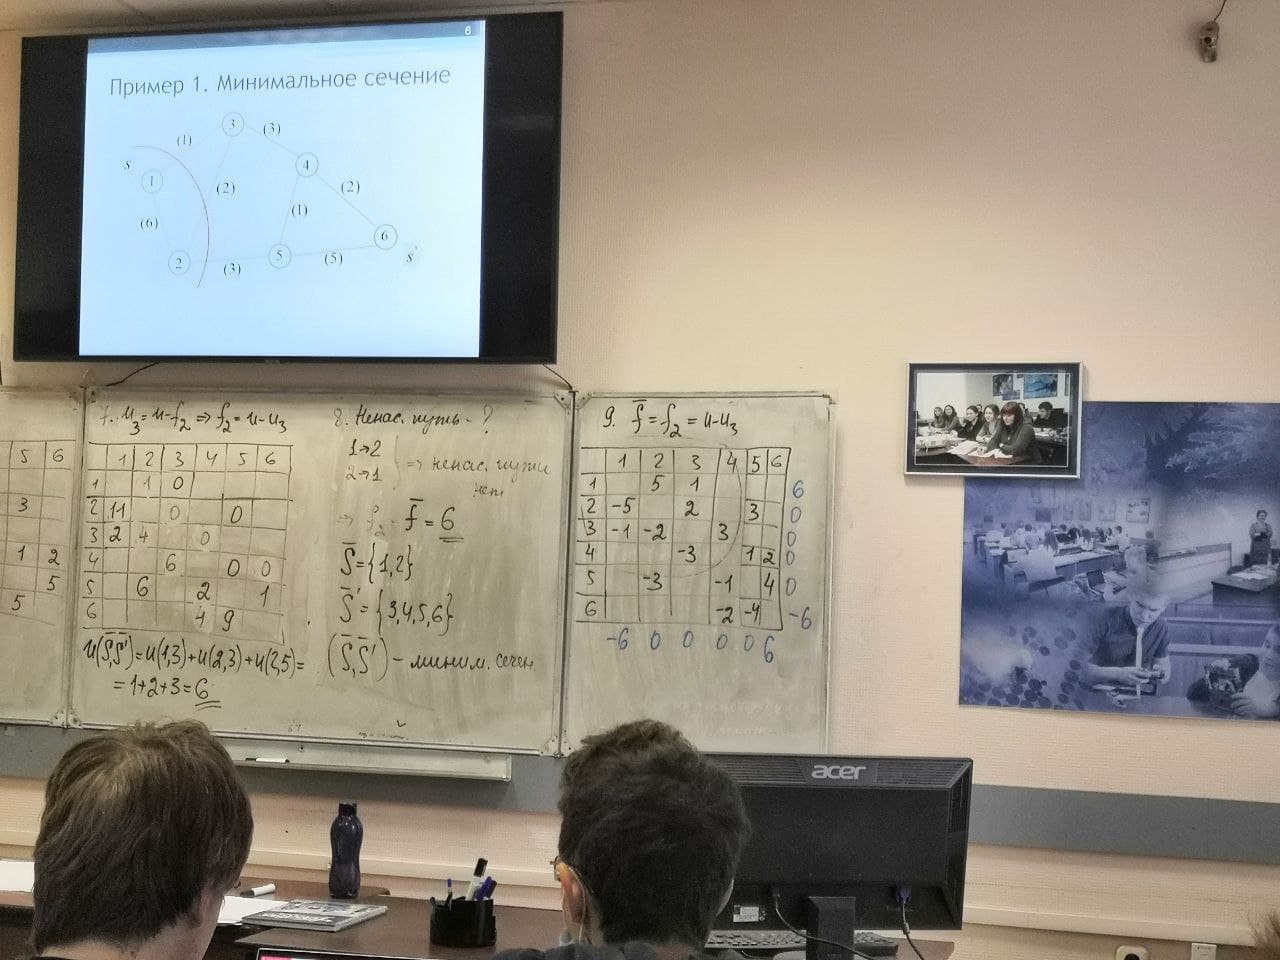 6
Пример 1. Минимальное сечение
3
(3)
(1)
s
4
1
(2)
(2)
(6)
(1)
6
2
(3)
5
(5)
s'
5 6
3
1 2
5
5
7. u₃ = u-f₂ => f₂ = u-u₃
1 2 3 4 5 6
1 1 0
2 11 0 0
3 2 4 0
4 6 0 0
5 6 2 1
6 4 9
u(S̅,S̅') = u(1,3)+u(2,3)+u(2,5)=
= 1+2+3 = 6
8. Ненас. путь - ?
1→2
2→1 => ненас. пути
нет
=> f₂ - f̅ = 6
S̅ = {1,2}
S̅' = {3,4,5,6}
(S̅,S̅') - миним. сечен.
9. f̅ = f₂ = u-u₃
1 2 3 4 5 6
1 5 1 6
2 -5 2 3 0
3 -1 -2 3 0
4 -3 1 2 0
5 -3 -1 4 0
6 -2 -4 -6
-6 0 0 0 0 6
acer